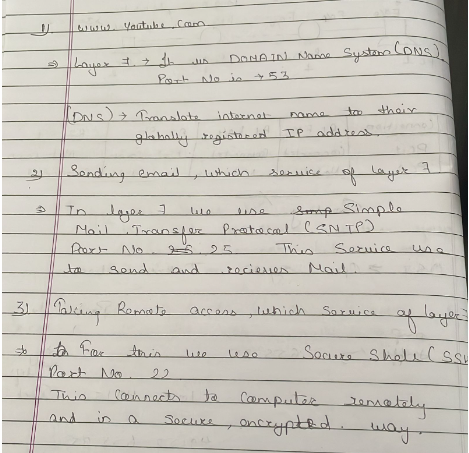 1) www.youtube.com
⇒ Layer 7 → It is DOMAIN Name System (DNS).
Port No is → 53
(DNS) → Translate internet name to their
globally registered IP address.
2) Sending email, which service of layer 7
⇒ In layer 7 we use Simple
Mail Transfer Protocol (SMTP)
Port No 25 This Service use
to send and recieves Mail.
3) Taking Remote access, which service of layer 7
⇒ For this we use Secure Shale (SSH
Port No 22
This Connects to Computer remotely
and in a secure, encrypted way.